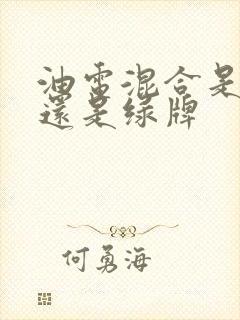 油電混合是
還是绿牌
何勇海